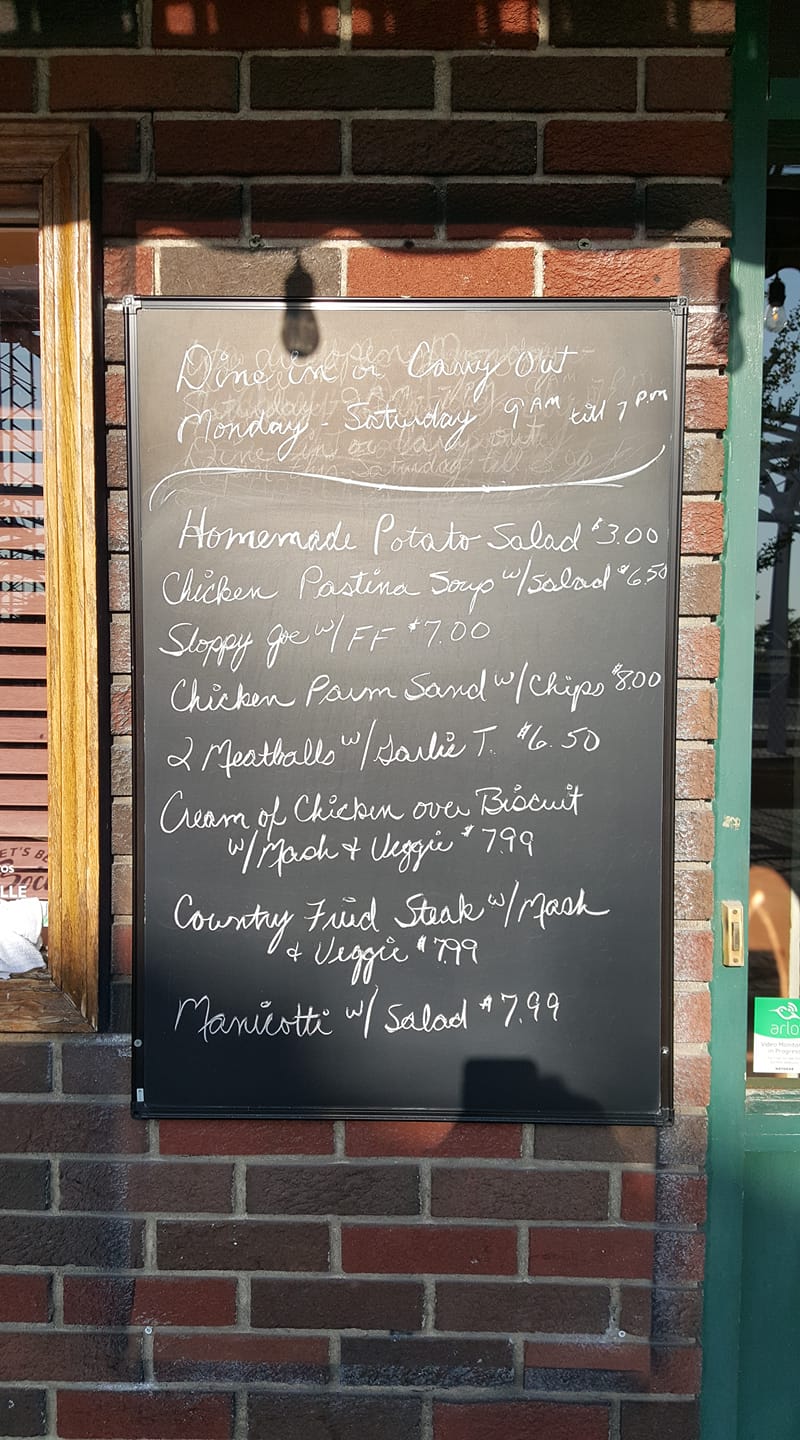 Dine in or Carry Out
Monday - Saturday 9 AM till 7 P.M
Homemade Potato Salad $3.00
Chicken Pastina Soup w/Salad $6.50
Sloppy Joe w/ FF $7.00
Chicken Parm Sand w/Chips $8.00
2 Meatballs w/Garlic T. $6.50
Cream of Chicken over Biscuit
w/Mash & Veggie $7.99
Country Fried Steak w/Mash
& Veggie $7.99
Manicotti w/ Salad $7.99
arlo
Video Monitor
in Progress
LLE